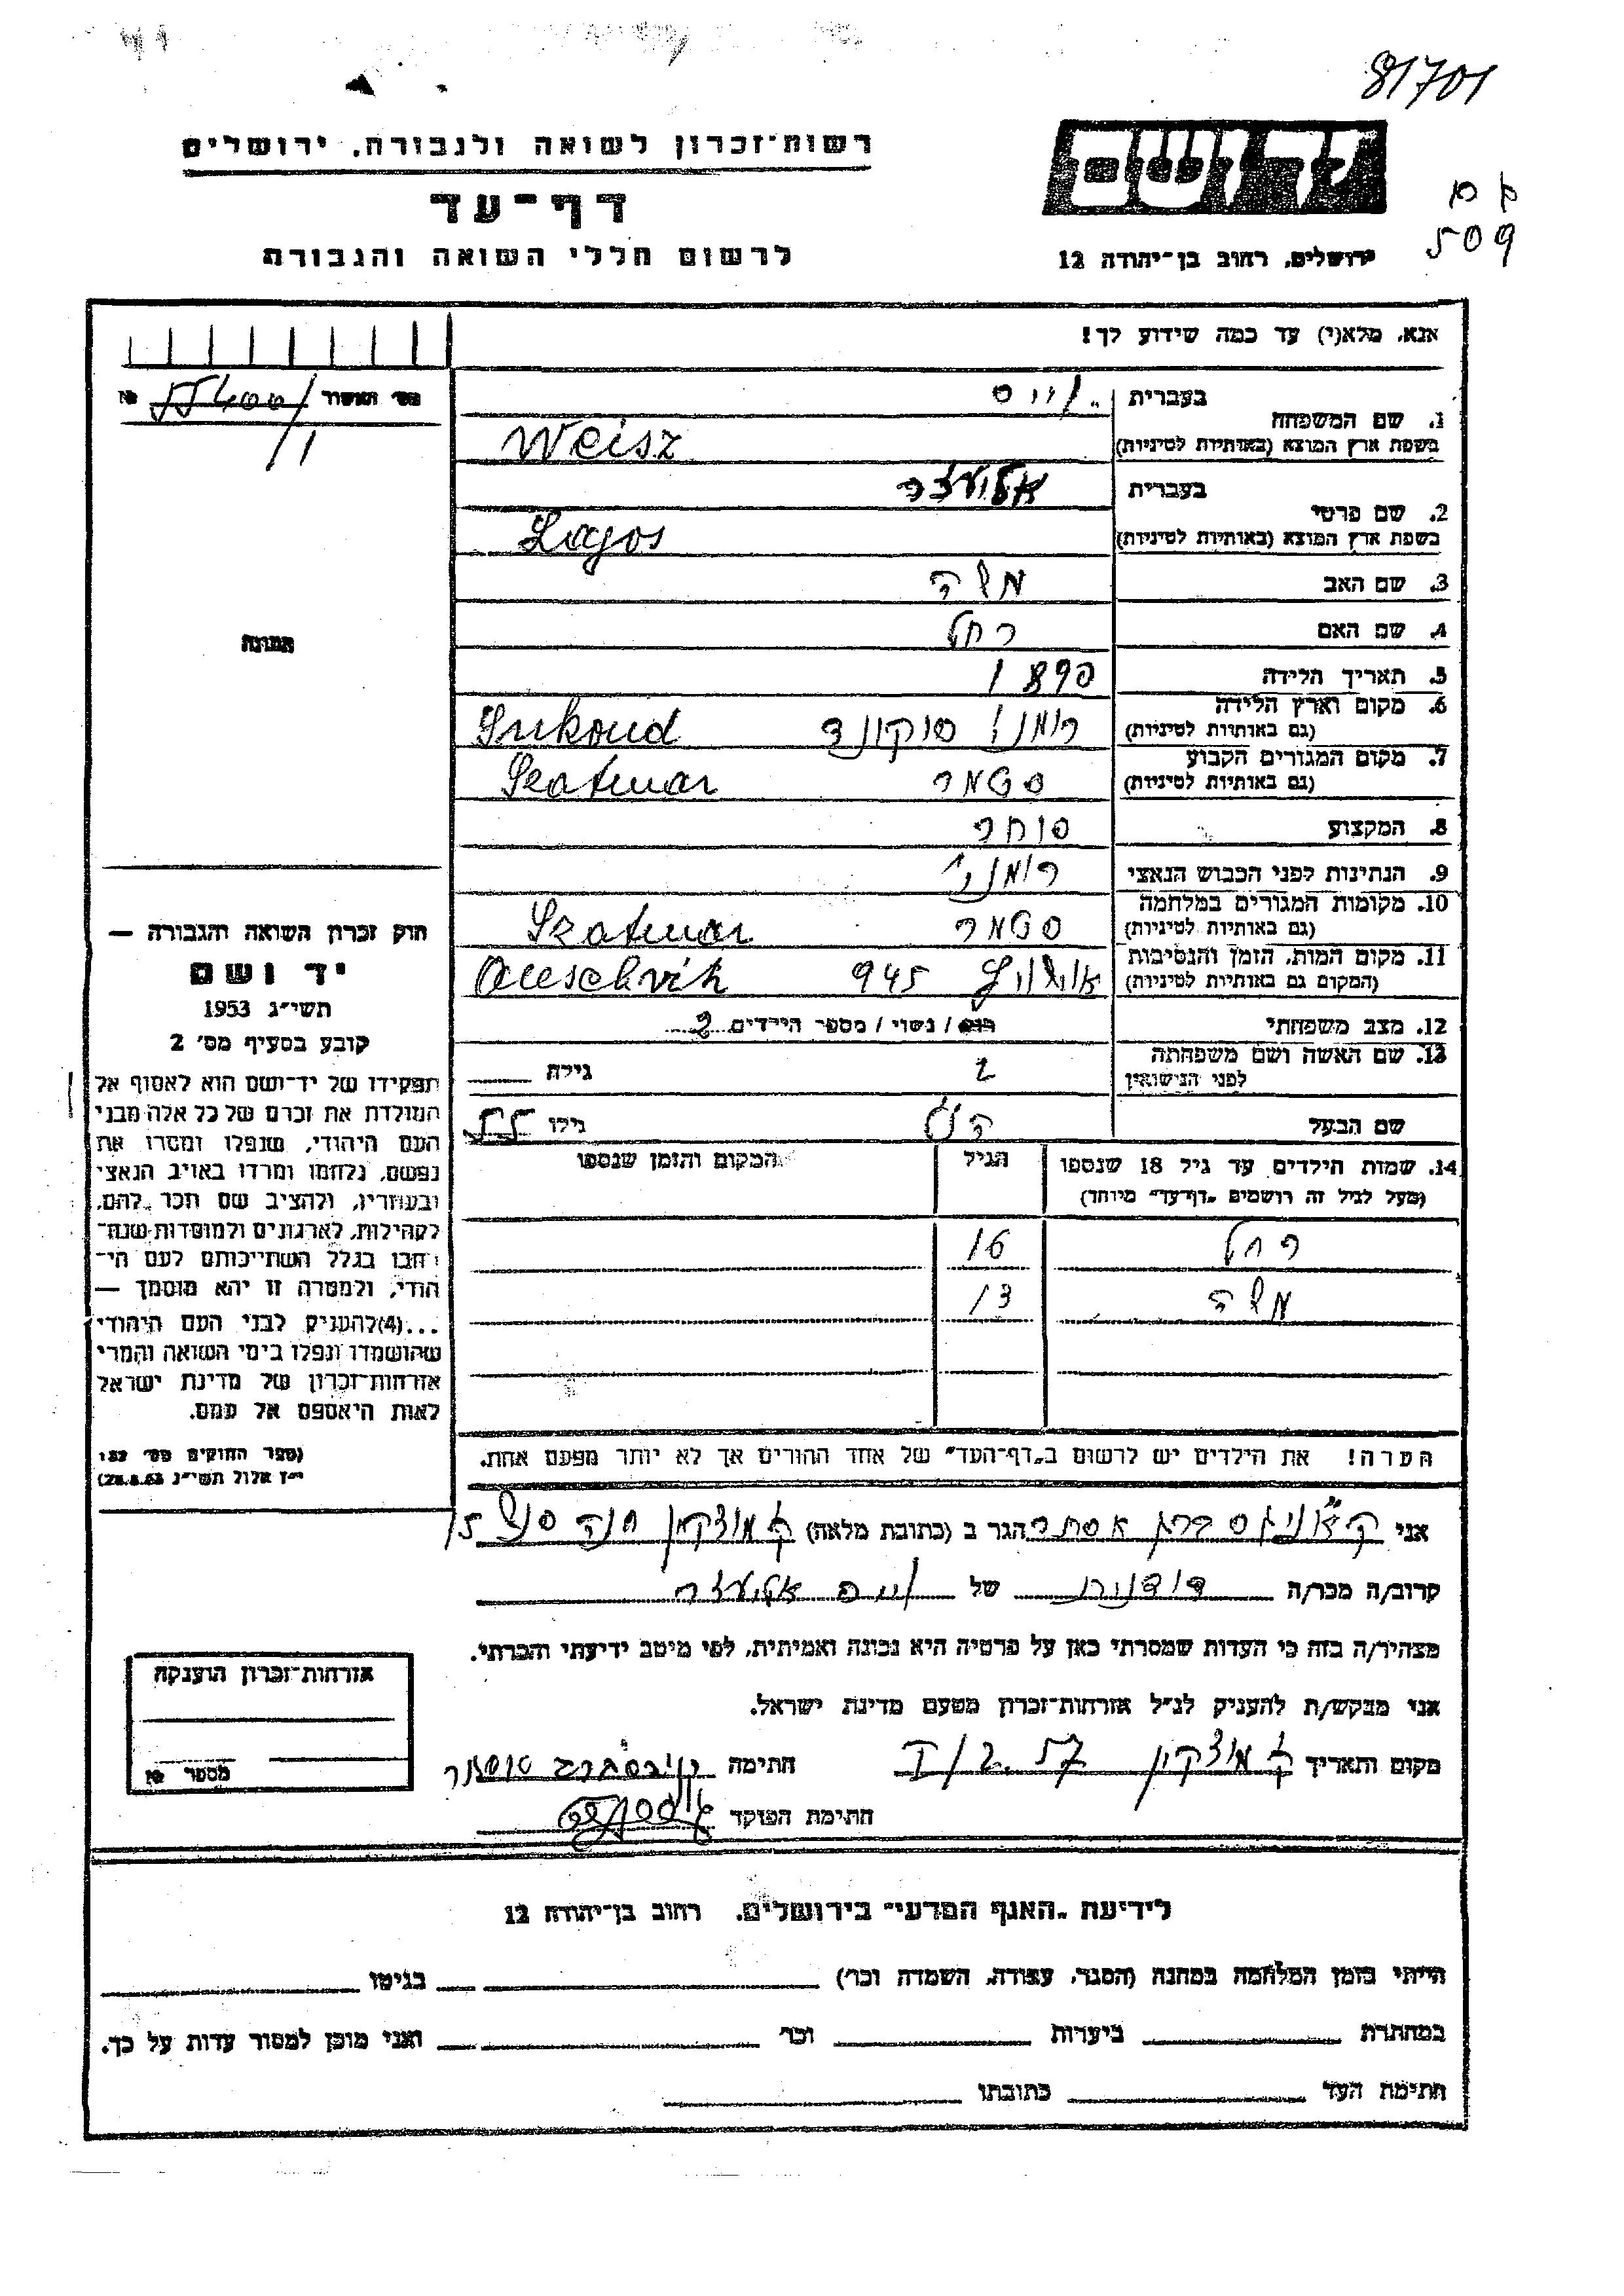 81701
יד ושם
ק מ
509
ירושלים, רחוב בן-יהודה 12
רשות-זכרון לשואה ולגבורה, ירושלים
דף-עד
לרשום חללי השואה והגבורה
אנא, מלא(י) עד כמה שידוע לך!
1. שם המשפחה בעברית וייס
בשפת ארץ המוצא (באותיות לטיניות) Weisz
2. שם פרטי בעברית אליעזר
בשפת ארץ המוצא (באותיות לטיניות) Lajos
3. שם האב משה
4. שם האם רחל
5. תאריך הלידה 1890
6. מקום וארץ הלידה
(גם באותיות לטיניות) סוקונד Sukoud
7. מקום המגורים הקבוע
(גם באותיות לטיניות) סטמר Szatmar
8. המקצוע סוחר
9. הנתינות לפני הכבוש הנאצי רומני
10. מקומות המגורים במלחמה
(גם באותיות לטיניות) סטמר Szatmar
11. מקום המות, הזמן והנסיבות
(המקום גם באותיות לטיניות) אושוויץ 945 Auschvitz
12. מצב משפחתי רווק / נשוי / מספר הילדים 2
13. שם האשה ושם משפחתה
לפני הנישואין גילה
שם הבעל גילו 55
14. שמות הילדים עד גיל 18 שנספו הגיל המקום והזמן שנספו
(מעל לגיל זה רושמים "דף-עד" מיוחד)
רחל 16
משה 13
הערה! את הילדים יש לרשום ב"דף-העד" של אחד ההורים אך לא יותר מפעם אחת.
מס' האשור 55400/1 №
תמונה
חוק זכרון השואה והגבורה —
יד ושם
תשי"ג 1953
קובע בסעיף מס' 2
תפקידו של יד-ושם הוא לאסוף אל
המולדת את זכרם של כל אלה מבני
העם היהודי, שנפלו ומסרו את
נפשם, נלחמו ומרדו באויב הנאצי
ובעוזריו, ולהציב שם וזכר להם,
לקהילות, לארגונים ולמוסדות שנח-
רבו בגלל השתייכותם לעם הי-
הודי, ולמטרה זו יהא מוסמך —
...(4) להעניק לבני העם היהודי
שהושמדו ונפלו בימי השואה והמרי
אזרחות-זכרון של מדינת ישראל
לאות היאספם אל עמם.
(ספר החוקים מס' 132
י"ז אלול תשי"ג 28.8.53)
אני אסתר הגר ב (כתובת מלאה) ק מוצקין חנה סנש 15
קרוב/ה מכר/ה של וייס אליעזר
מצהיר/ה בזה כי העדות שמסרתי כאן על פרטיה היא נכונה ואמיתית, לפי מיטב ידיעתי והכרתי.
אני מבקש/ת להעניק לנ"ל אזרחות-זכרון מטעם מדינת ישראל.
מקום ותאריך ק מוצקין חתימה
חתימת הפוקד
אזרחות-זכרון הוענקה
מספר №
לידיעת "האגף המדעי" בירושלים, רחוב בן-יהודה 12
הייתי בזמן המלחמה במחנה (הסגר, עבודה, השמדה וכו') בגיטו
במחתרת ביערות וכו' ואני מוכן למסור עדות על כך.
חתימת העד כתובתו